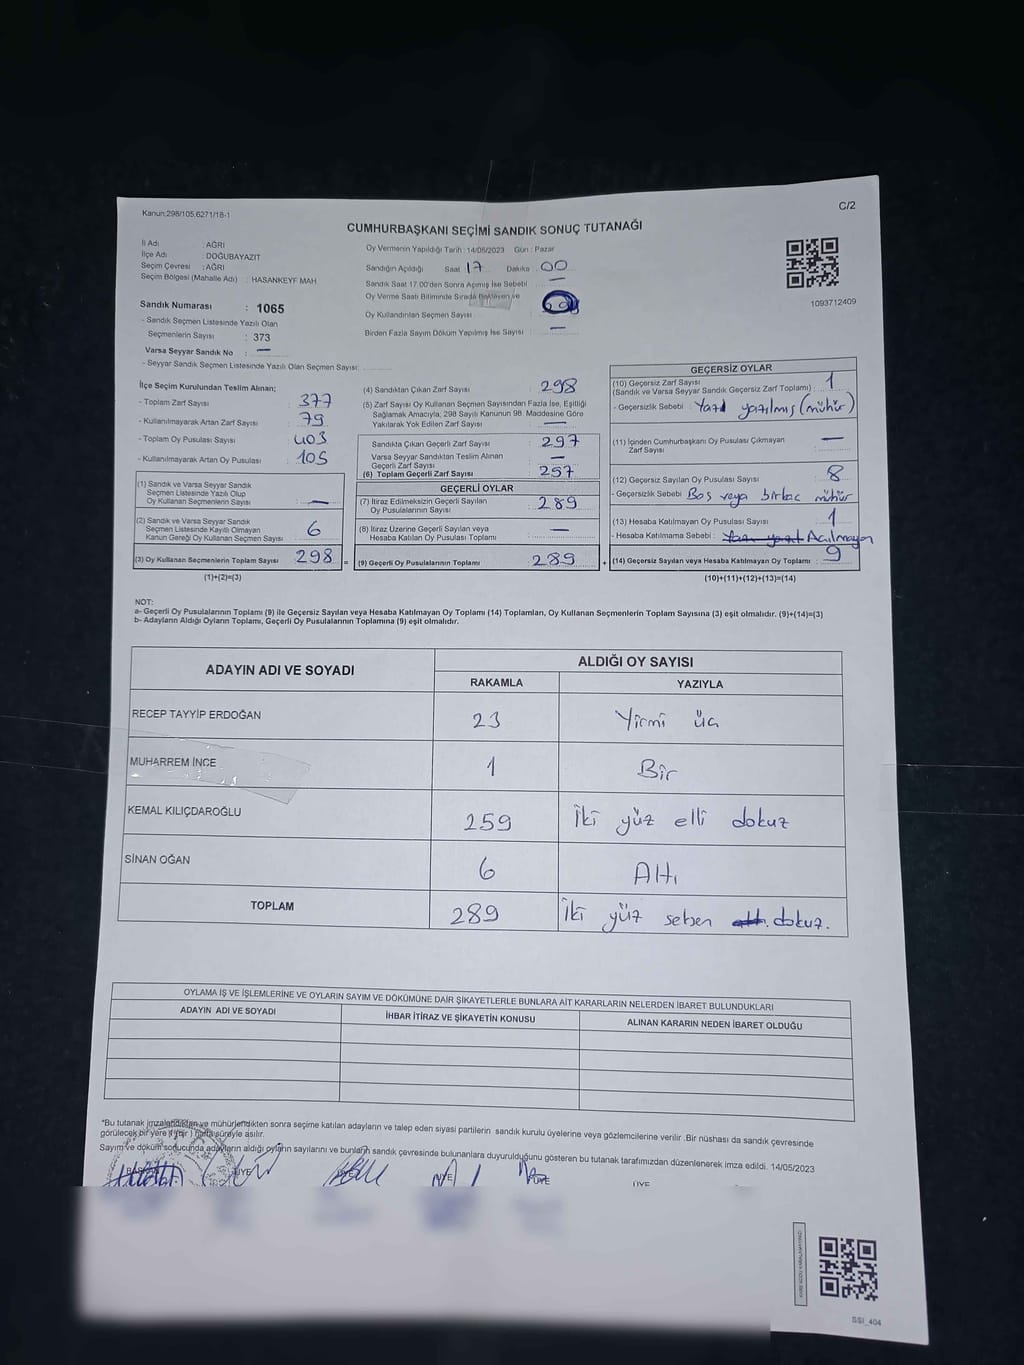 Kanun:298/105,6271/18-1
C/2
CUMHURBAŞKANI SEÇİMİ SANDIK SONUÇ TUTANAĞI
İl Adı : AĞRI
İlçe Adı : DOĞUBAYAZIT
Seçim Çevresi : AĞRI
Seçim Bölgesi (Mahalle Adı) : HASANKEYF MAH
Sandık Numarası : 1065
- Sandık Seçmen Listesinde Yazılı Olan
Seçmenlerin Sayısı : 373
Varsa Seyyar Sandık No : —
- Seyyar Sandık Seçmen Listesinde Yazılı Olan Seçmen Sayısı:
Oy Vermenin Yapıldığı Tarih : 14/05/2023 Gün : Pazar
Sandığın Açıldığı Saat 17 Dakika : 00
Sandık Saat 17.00'den Sonra Açımış İse Sebebi —
Oy Verme Saati Bitiminde Sırada Bekleyen ve
Oy Kullandırılan Seçmen Sayısı :
Birden Fazla Sayım Döküm Yapılmış İse Sayısı : —
1093712409
İlçe Seçim Kurulundan Teslim Alınan;
- Toplam Zarf Sayısı : 377
- Kullanılmayarak Artan Zarf Sayısı : 79
- Toplam Oy Pusulası Sayısı : 403
- Kullanılmayarak Artan Oy Pusulası : 105
(1) Sandık ve Varsa Seyyar Sandık
Seçmen Listesinde Yazılı Olup
Oy Kullanan Seçmenlerin Sayısı : —
(2) Sandık ve Varsa Seyyar Sandık
Seçmen Listesinde Kayıtlı Olmayan
Kanun Gereği Oy Kullanan Seçmen Sayısı : 6
(3) Oy Kullanan Seçmenlerin Toplam Sayısı : 298 =
(1)+(2)=(3)
(4) Sandıktan Çıkan Zarf Sayısı : 298
(5) Zarf Sayısı Oy Kullanan Seçmen Sayısından Fazla İse, Eşitliği
Sağlamak Amacıyla, 298 Sayılı Kanunun 98. Maddesine Göre
Yakılarak Yok Edilen Zarf Sayısı : —
Sandıkta Çıkan Geçerli Zarf Sayısı : 297
Varsa Seyyar Sandıktan Teslim Alınan
Geçerli Zarf Sayısı : —
(6) Toplam Geçerli Zarf Sayısı : 257
GEÇERLİ OYLAR
(7) İtiraz Edilmeksizin Geçerli Sayılan
Oy Pusulalarının Sayısı : 289
(8) İtiraz Üzerine Geçerli Sayılan veya
Hesaba Katılan Oy Pusulası Toplamı : —
(9) Geçerli Oy Pusulalarının Toplamı : 289 +
GEÇERSİZ OYLAR
(10) Geçersiz Zarf Sayısı
(Sandık ve Varsa Seyyar Sandık Geçersiz Zarf Toplamı) : 1
- Geçersizlik Sebebi : Yazı yazılmış (mühür)
(11) İçinden Cumhurbaşkanı Oy Pusulası Çıkmayan
Zarf Sayısı : —
(12) Geçersiz Sayılan Oy Pusulası Sayısı : 8
- Geçersizlik Sebebi : Boş veya birkac mühür
(13) Hesaba Katılmayan Oy Pusulası Sayısı : 1
- Hesaba Katılmama Sebebi : Açılmayan
(14) Geçersiz Sayılan veya Hesaba Katılmayan Oy Toplamı : 9
(10)+(11)+(12)+(13)=(14)
NOT:
a- Geçerli Oy Pusulalarının Toplamı (9) ile Geçersiz Sayılan veya Hesaba Katılmayan Oy Toplamı (14) Toplamları, Oy Kullanan Seçmenlerin Toplam Sayısına (3) eşit olmalıdır. (9)+(14)=(3)
b- Adayların Aldığı Oyların Toplamı, Geçerli Oy Pusulalarının Toplamına (9) eşit olmalıdır.
ADAYIN ADI VE SOYADI
ALDIĞI OY SAYISI
RAKAMLA YAZIYLA
RECEP TAYYİP ERDOĞAN 23 Yirmi üc
MUHARREM İNCE 1 Bir
KEMAL KILIÇDAROĞLU 259 İki yüz elli dokuz
SİNAN OĞAN 6 Altı
TOPLAM 289 İki yüz seksen dokuz.
OYLAMA İŞ VE İŞLEMLERİNE VE OYLARIN SAYIM VE DÖKÜMÜNE DAİR ŞİKAYETLERLE BUNLARA AİT KARARLARIN NELERDEN İBARET BULUNDUKLARI
ADAYIN ADI VE SOYADI İHBAR İTİRAZ VE ŞİKAYETİN KONUSU ALINAN KARARIN NEDEN İBARET OLDUĞU
*Bu tutanak imzalandıktan ve mühürlendikten sonra seçime katılan adayların ve talep eden siyasi partilerin sandık kurulu üyelerine veya gözlemcilerine verilir .Bir nüshası da sandık çevresinde
görülecek bir yere 1 (bir ) hafta süreyle asılır.
Sayım ve döküm sonucunda adayların aldığı oyların sayılarını ve bunların sandık çevresinde bulunanlara duyurulduğunu gösteren bu tutanak tarafımızdan düzenlenerek imza edildi. 14/05/2023
BAŞKAN ÜYE ÜYE ÜYE ÜYE
SSI_404